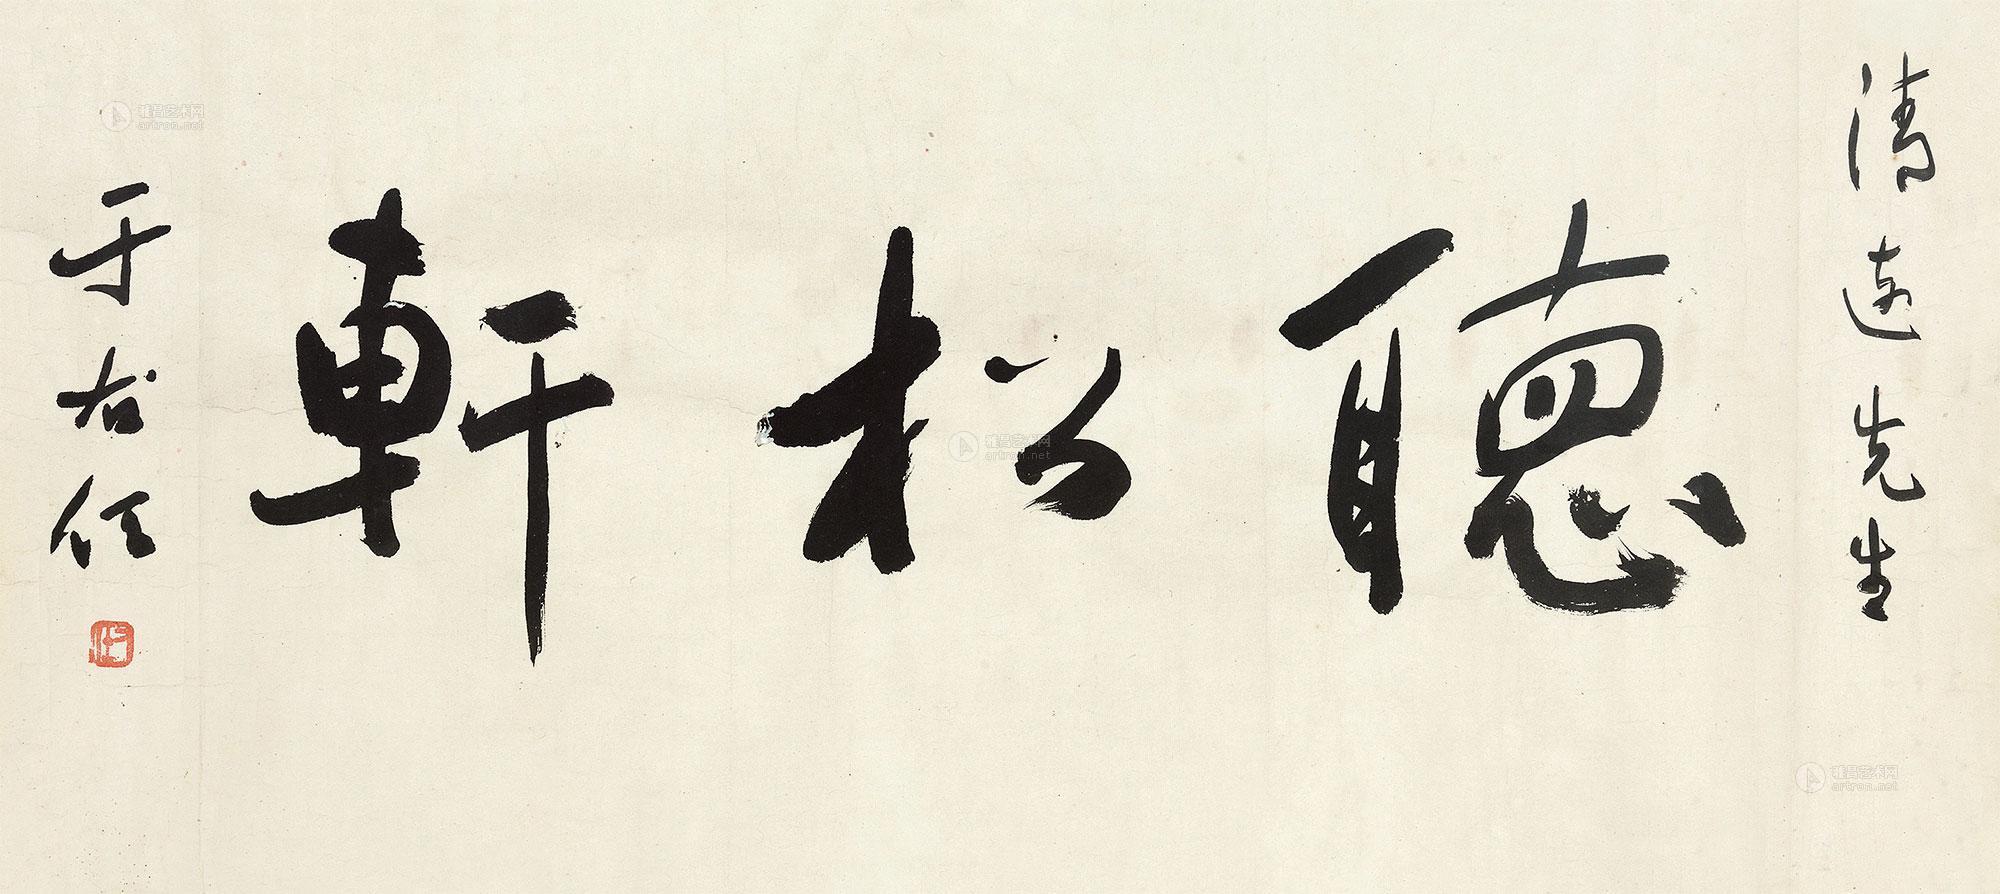 清遠先生
聽松軒
于右任
雅昌艺术网
artron.net
雅昌艺术网
artron.net
雅昌艺术网
artron.net